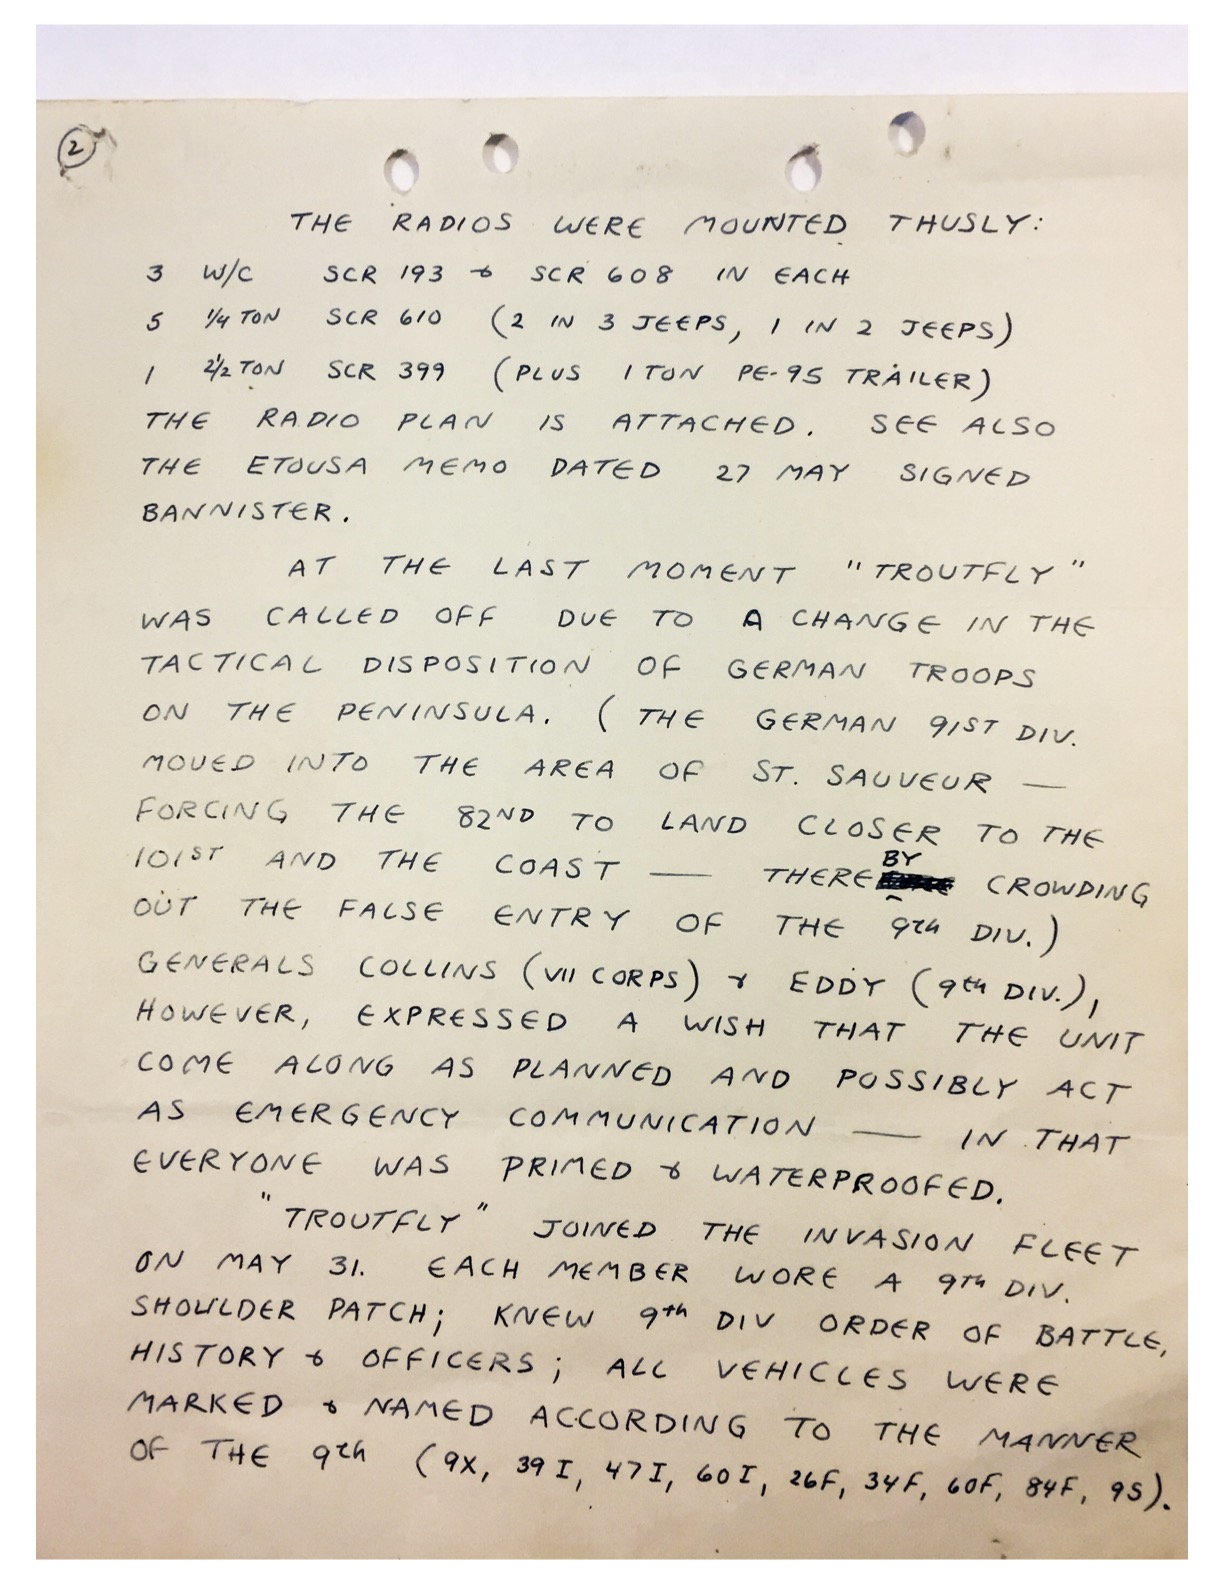 2
THE RADIOS WERE MOUNTED THUSLY:
3 W/C SCR 193 & SCR 608 IN EACH
5 1/4 TON SCR 610 (2 IN 3 JEEPS, 1 IN 2 JEEPS)
1 2 1/2 TON SCR 399 (PLUS 1 TON PE-95 TRAILER)
THE RADIO PLAN IS ATTACHED. SEE ALSO
THE ETOUSA MEMO DATED 27 MAY SIGNED
BANNISTER.
AT THE LAST MOMENT "TROUTFLY"
WAS CALLED OFF DUE TO A CHANGE IN THE
TACTICAL DISPOSITION OF GERMAN TROOPS
ON THE PENINSULA. (THE GERMAN 91ST DIV.
MOVED INTO THE AREA OF ST. SAUVEUR —
FORCING THE 82ND TO LAND CLOSER TO THE
101ST AND THE COAST — THEREBY CROWDING
OUT THE FALSE ENTRY OF THE 9th DIV.)
GENERALS COLLINS (VII CORPS) & EDDY (9th DIV.),
HOWEVER, EXPRESSED A WISH THAT THE UNIT
COME ALONG AS PLANNED AND POSSIBLY ACT
AS EMERGENCY COMMUNICATION — IN THAT
EVERYONE WAS PRIMED & WATERPROOFED.
"TROUTFLY" JOINED THE INVASION FLEET
ON MAY 31. EACH MEMBER WORE A 9TH DIV.
SHOULDER PATCH; KNEW 9th DIV ORDER OF BATTLE,
HISTORY & OFFICERS; ALL VEHICLES WERE
MARKED & NAMED ACCORDING TO THE MANNER
OF THE 9th (9X, 39I, 47I, 60I, 26F, 34F, 60F, 84F, 9S).